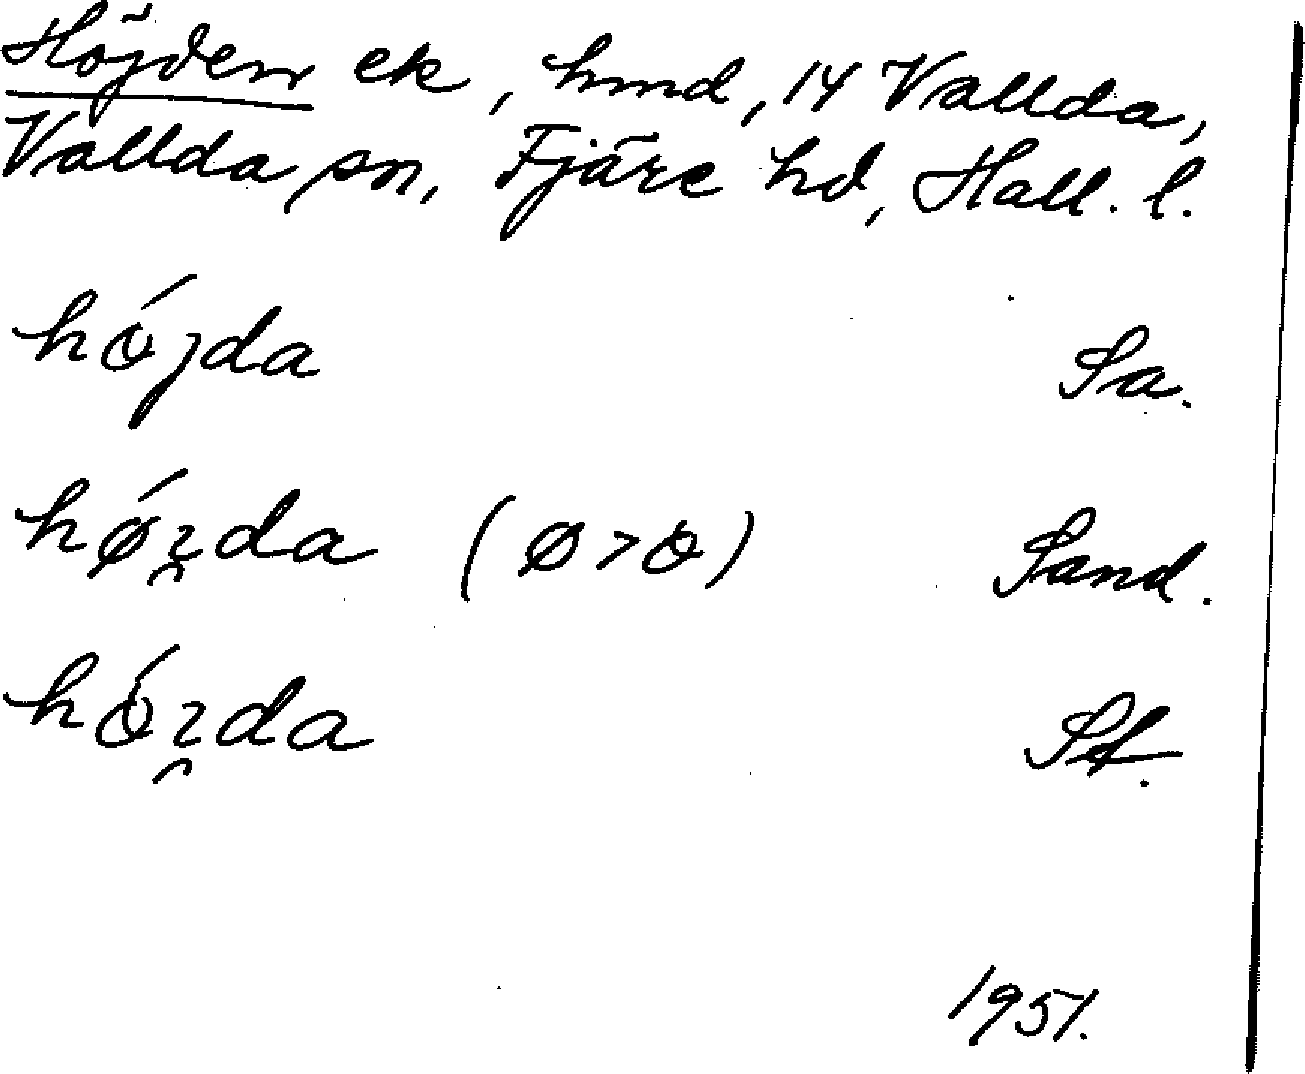 Höjden ek, hmd, 14 Vallda,
Vallda sn, Fjäre hd, Hall. l.
hójda Sa.
hǿı̯da (ø>o) Sand.
hóı̯da Sf.
1951.